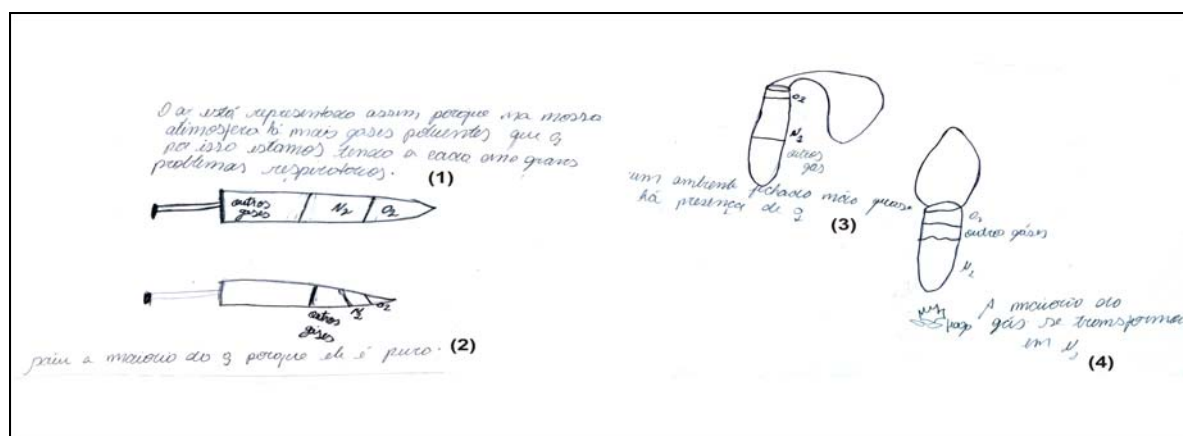 O ar está representado assim, porque na nossa
atimosfera há mais gases poluentes que O2
por isso estamos tendo a cada ano graves
problemas respiratórios. (1)
outros gases N2 O2
outros gáses N2 O2
a maioria do O2 porque ele é puro. (2)
O2
N2
outros gás
um ambiente fichado não
há presença de O2 (3)
O2
outros gáses
N2
fogo
A maioria do
gás se transforma
em N2 (4)